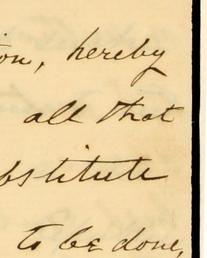 ion, hereby
all that
bstitute
to be done,